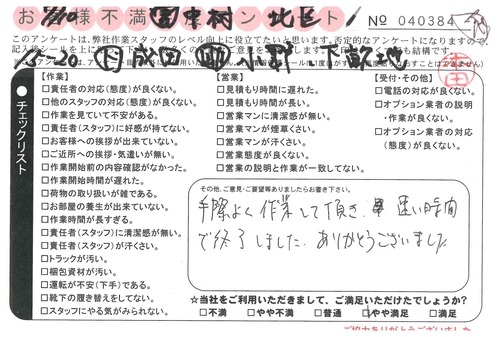 お客様不満 アンケート
No 040384
このアンケートは、弊社作業スタッフのレベル向上に役立てたいと思います。否定的なアンケートになりますので、
チェックリスト
【作業】
□責任者の対応(態度)が良くない。
□他のスタッフの対応(態度)が良くない。
□作業を見ていて不安がある。
□責任者(スタッフ)に好感が持てない。
□お客様への挨拶が出来ていない。
□ご近所への挨拶・気遣いが無い。
□作業開始前の内容確認がなかった。
□作業開始時間が遅れた。
□荷物の取り扱いが雑である。
□お部屋の養生が出来ていない。
□作業時間が長すぎる。
□責任者(スタッフ)に清潔感が無い。
□責任者(スタッフ)が汗くさい。
□トラックが汚い。
□梱包資材が汚い。
□運転が不安(下手)である。
□靴下の履き替えをしてない。
□スタッフにやる気がみられない。
【営業】
□見積もり時間に遅れた。
□見積もり時間が長い。
□営業マンに清潔感が無い。
□営業マンが煙草くさい。
□営業マンが汗くさい。
□営業態度が良くない。
□営業の説明と作業が一致してない。
【受付・その他】
□電話の対応が良くない。
□オプション業者の説明
・作業が良くない。
□オプション業者の対応
(態度)が良くない。
その他、ご意見・ご要望等ありましたらお書き下さい。
手際よく作業して頂き、速い時間
で終了しました。ありがとうございました
☆当社をご利用いただきまして、ご満足いただけたでしょうか?
□不満 □やや不満 □普通 □やや満足 □満足
ご協力ありがとうございました